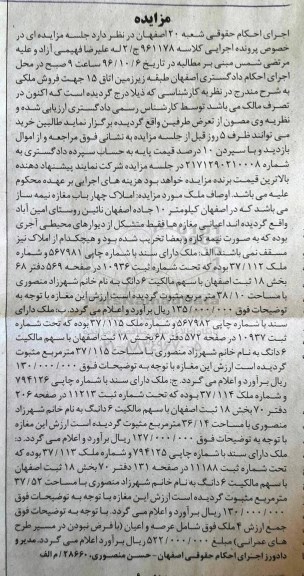 مزایده
اجرای احکام حقوقی شعبه ۲۰ اصفهان در نظر دارد جلسه مزایده ای در
خصوص پرونده اجرایی کلاسه ۹۶۱۱۷۸ ج/۲ له علیرضا فهیمی آزاد و علیه
مرتضی شمس مبنی بر مطالبه در تاریخ ۹۶/۱۰/۶ ساعت ۹ صبح در محل
اجرای احکام دادگستری اصفهان طبقه زیرزمین اتاق ۱۵ جهت فروش ملکی
به شرح مندرج در نظریه کارشناسی که ذیلا درج گردیده است که اکنون در
تصرف مالک می باشد توسط کارشناس رسمی دادگستری ارزیابی شده و
نظریه وی مصون از تعرض طرفین واقع گردیده برگزار نماید طالبین خرید
می توانند ظرف ۵ روز قبل از جلسه مزایده به نشانی فوق مراجعه و از اموال
بازدید و با سپردن ۱۰ درصد قیمت پایه به حساب سپرده دادگستری به
شماره ۲۱۷۱۲۹۰۲۱۰۰۰۸ در جلسه مزایده شرکت نمایند پیشنهاد دهنده
بالاترین قیمت برنده مزایده خواهد بود هزینه های اجرایی بر عهده محکوم
علیه می باشد. اوصاف ملک مورد مزایده: املاک چهار باب مغازه نیمه ساز
می باشد که در اصفهان کیلومتر ۱۰ جاده اصفهان نائین روستای امین آباد
واقع گردیده اند اعیانی مغازه ها فقط متشکل از دیوارهای محیطی آجری
بوده که به صورت نیمه کاره و بعضا تخریب شده بود و هیچکدام از املاک نیز
مسقف نمی باشند الف: ملک دارای سند با شماره چاپی ۵۶۷۹۸۱ و شماره
ملک ۳۷/۱۱۲ بوده که تحت شماره ثبت ۱۰۹۳۶ در صفحه ۵۶۹ دفتر ۶۸
بخش ۱۸ ثبت اصفهان با سهم مالکیت ۶ دانگ به نام خانم شهرزاد منصوری
با مساحت ۳۸/۱۰ متر مربع مثبوت گردیده است ارزش این مغازه با توجه به
توضیحات فوق ۱۳۵/۰۰۰/۰۰۰ ریال برآورد و اعلام می گردد. ب: ملک دارای
سند با شماره چاپی ۵۶۷۹۸۲ و شماره ملک ۳۷/۱۱۵ بوده که تحت شماره
ثبت ۱۰۹۳۷ در صفحه ۵۷۲ دفتر ۶۸ بخش ۱۸ ثبت اصفهان با سهم مالکیت
۶ دانگ به نام خانم شهرزاد منصوری با مساحت ۳۷/۱۱۵ مترمربع مثبوت
گردیده است ارزش این مغازه با توجه به توضیحات فوق ۱۳۰/۰۰۰/۰۰۰
ریال برآورد و اعلام می گردد. ج: ملک دارای سند با شماره چاپی ۷۹۴۱۲۶
و شماره ملک ۳۷/۱۱۴ بوده که تحت شماره ثبت ۱۱۲۱۳ در صفحه ۲۰۶
دفتر ۷۰ بخش ۱۸ ثبت اصفهان با سهم مالکیت ۶ دانگ به نام خانم شهرزاد
منصوری با مساحت ۳۶/۱۴ مترمربع مثبوت گردیده است ارزش این مغازه
با توجه به توضیحات فوق ۱۲۷/۰۰۰/۰۰۰ ریال برآورد و اعلام می گردد. د:
ملک دارای سند با شماره چاپی ۷۹۴۱۲۵ و شماره ملک ۳۷/۱۱۳ بوده که
تحت شماره ثبت ۱۱۱۸۸ در صفحه ۱۳۱ دفتر ۷۰ بخش ۱۸ ثبت اصفهان
با سهم مالکیت ۶ دانگ به نام خانم شهرزاد منصوری با مساحت ۳۷/۵۲
مترمربع مثبوت گردیده است ارزش این مغازه با توجه به توضیحات فوق
۱۳۰/۰۰۰/۰۰۰ ریال برآورد و اعلام می گردد. با توجه به توضیحات فوق
جمع ارزش ۴ ملک فوق شامل عرصه و اعیان (با فرض نبودن در مسیر طرح
های عمرانی) مبلغ ۵۲۲/۰۰۰/۰۰۰ ریال برآورد و اعلام می گردد. مدیر و
دادورز اجرای احکام حقوقی اصفهان - حسن منصوری، ۲۸۶۶۰/ م الف